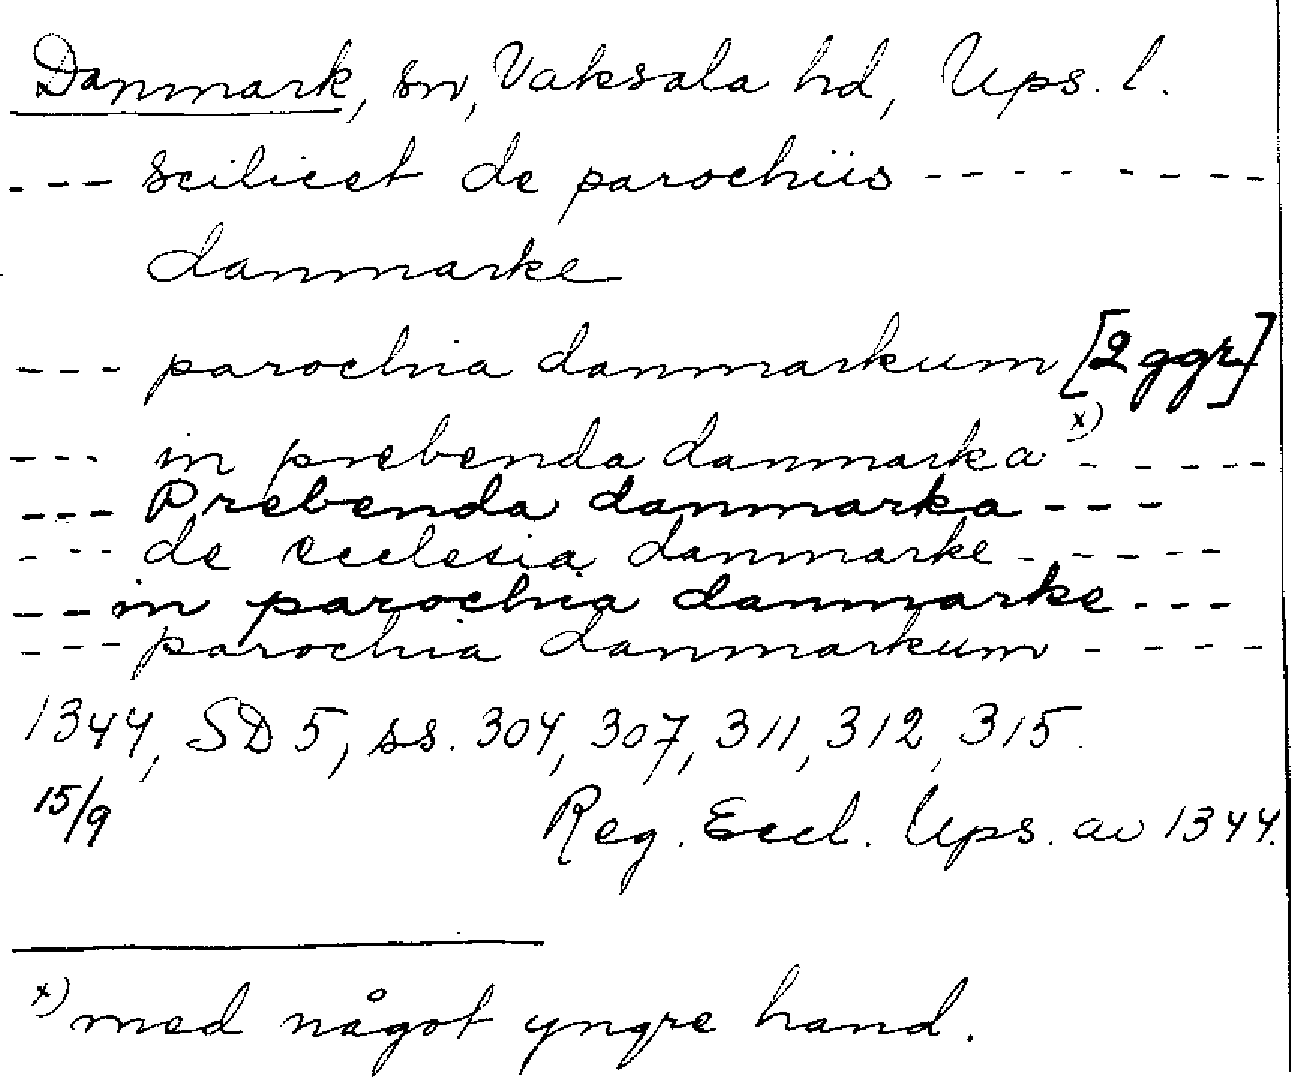 Danmark, sn, Vaksala hd, Ups. l.
--- scilicet de parochiis --------
danmarke
--- parochia danmarkum [2 ggr]
--- in prebenda danmarka x) -----
--- Prebenda danmarka ---
--- de ecclesia danmarke -----
-- in parochia danmarke ---
--- parochia danmarkum ----
1344, SD 5, ss. 304, 307, 311, 312, 315.
15/9 Reg. Eccl. Ups. av 1344.
x) med något yngre hand.